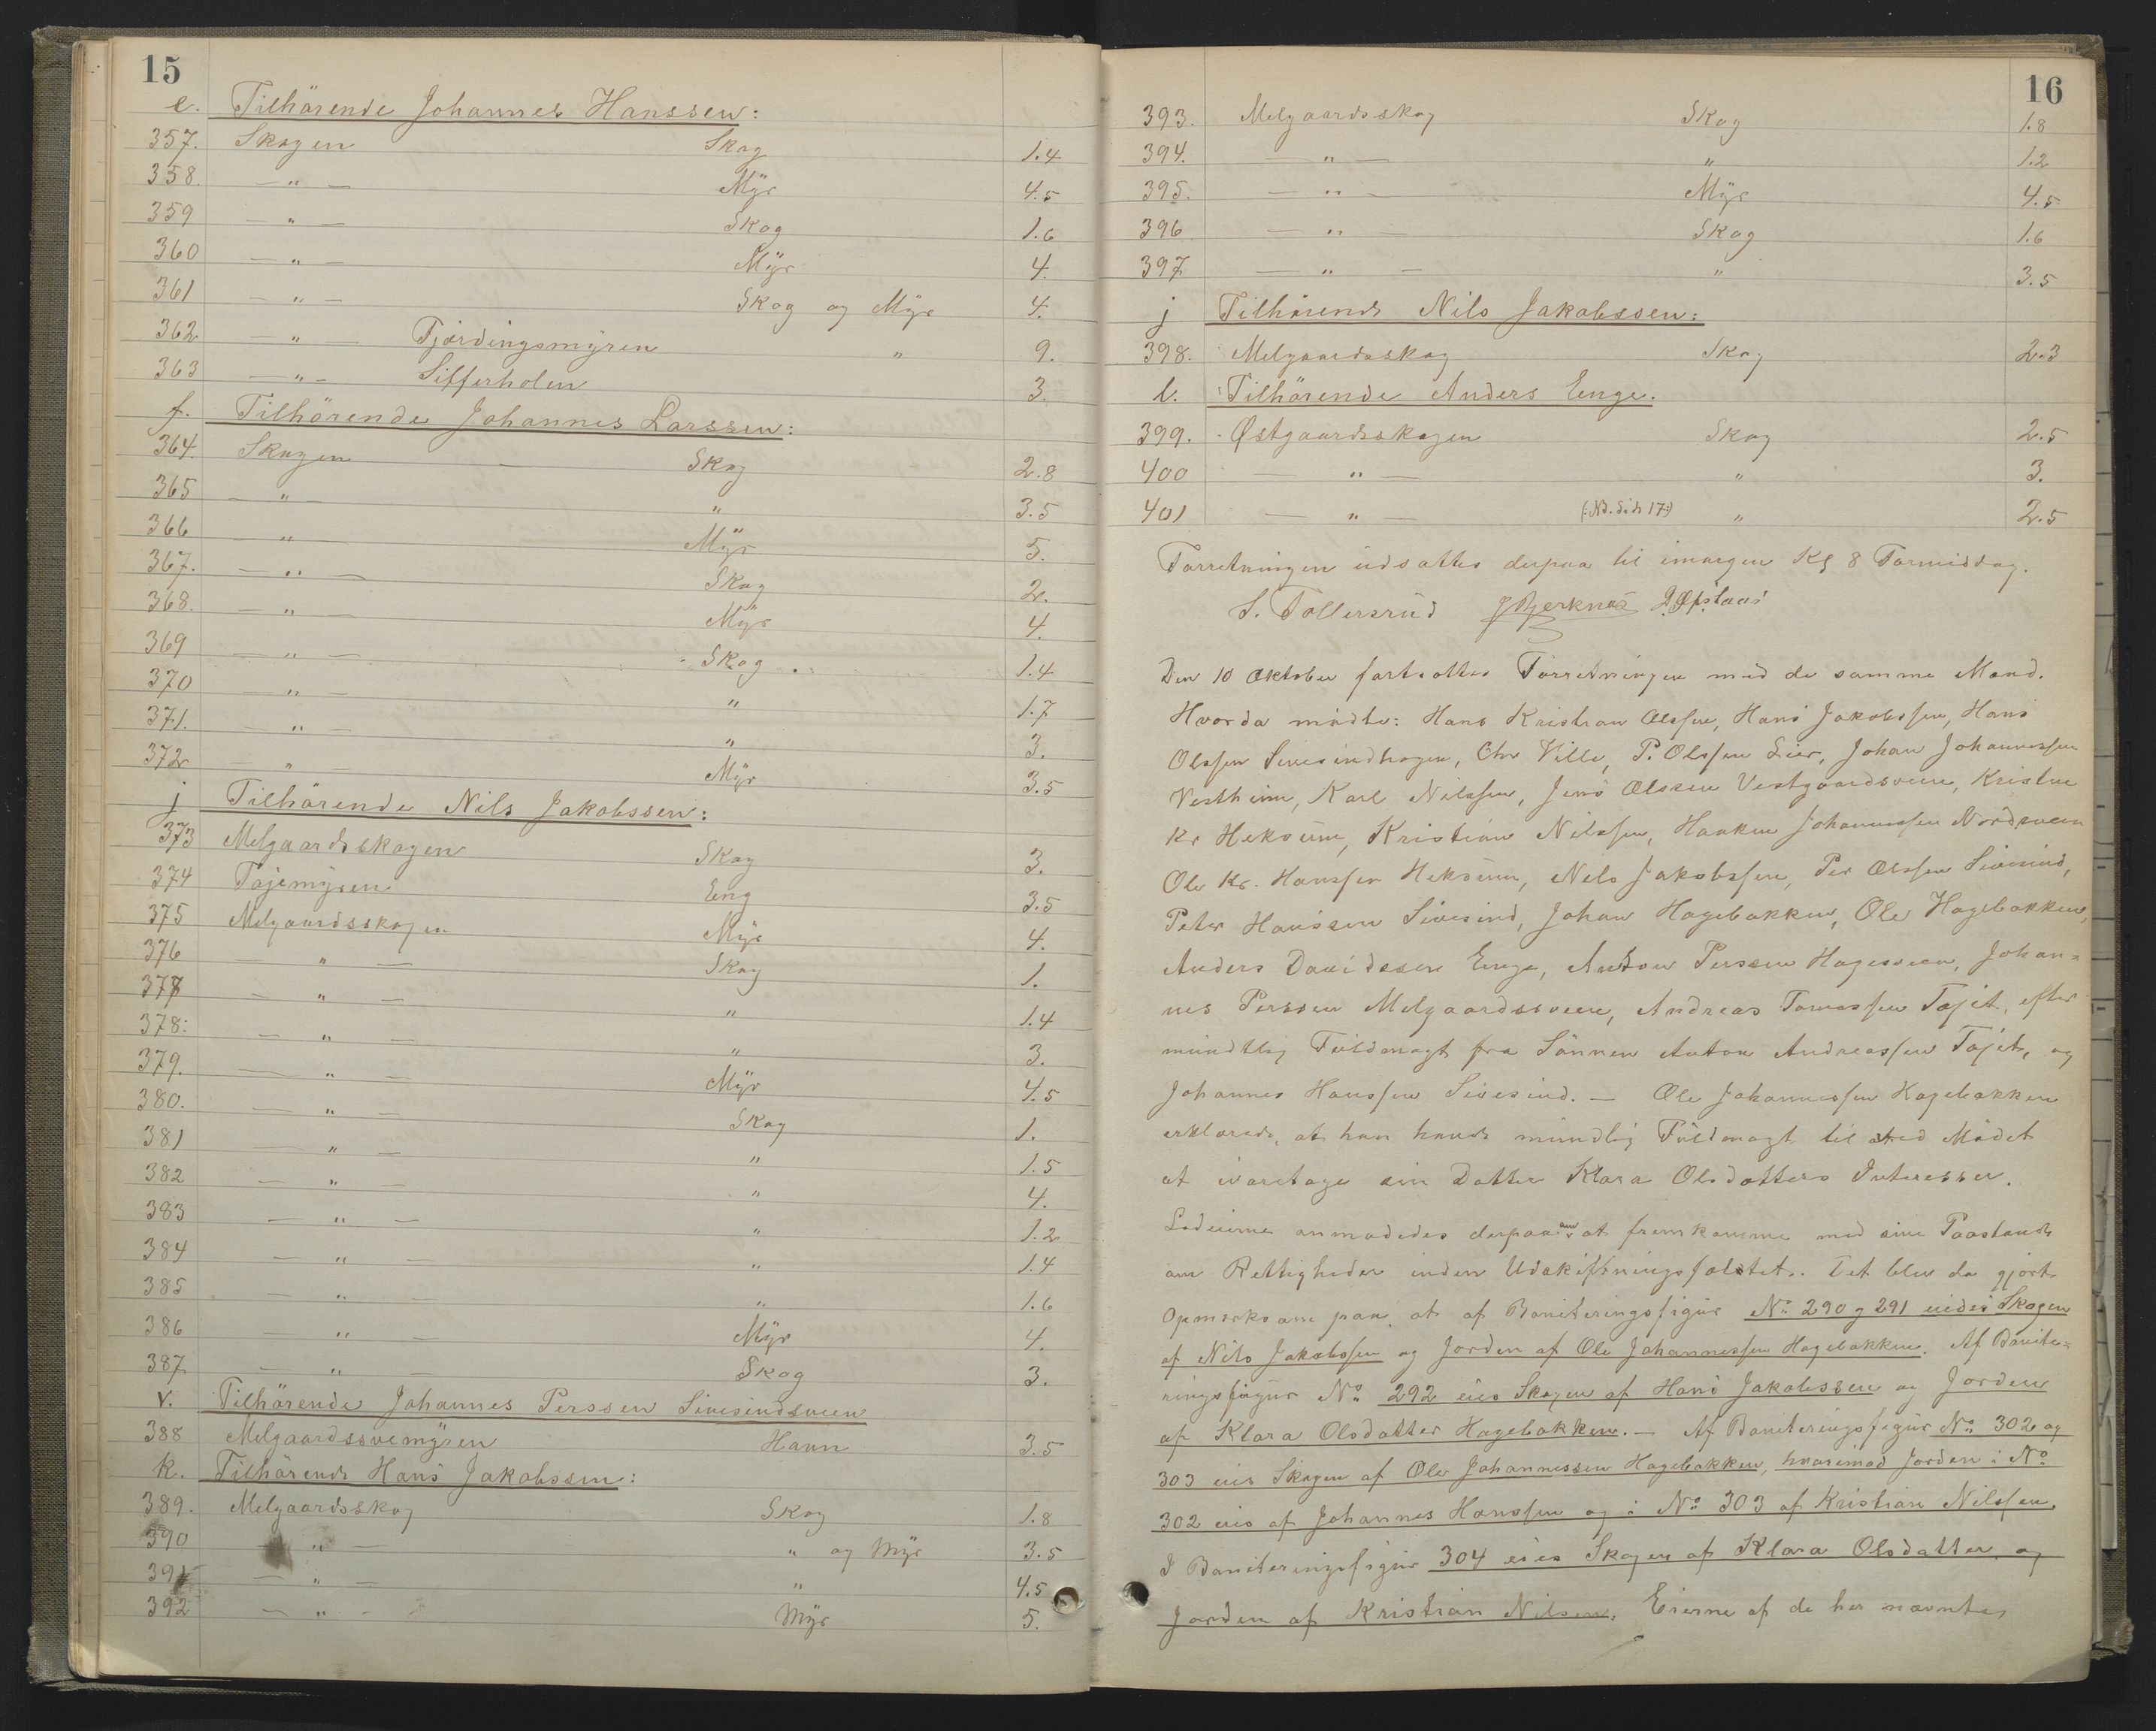 15
e. Tilhörende Johannes Hanssen:
357. Skogen Skog 1.4
358. — " — Myr 4.5
359 — " — Skog 1.6
360 — " — Myr 4.
361 — " — Skog og Myr 4.
362 — " — Fjordingsmyren " 9.
363 — " — Sifferholen 3.
f. Tilhörende Johannes Larssen:
364. Skogen — Skog 2.8
365 — " — " 3.5
366 — " — Myr 5.
367. — " — Skog 2.
368. — " — Myr 4.
369 — " — Skog 1.4
370 — " — " 1.7
371. — " — " 3.
372 — " — Myr 3.5
j Tilhörende Nils Jakobssen:
373 Melgaardsskogen Skog 3.
374 Tajemyren Eng 3.5
375 Melgaardsskogen Myr 4.
376 — " — Skog 1.
377 — " — " 1.4
378: — " — " 3.
379. — " — Myr 4.5
380. — " — Skog 1.
381 — " — " 1.5
382 — " — " 4.
383 — " — " 1.2
384 — " — " 1.4
385 — " — " 1.6
386 — " — Myr 4.
387 — " — Skog 3.
v. Tilhörende Johannes Perssen Sivesindsveen
388 Melgaardssvemyren Havn 3.5
k. Tilhörende Hans Jakobssen:
389. Melgaardsskog Skog 1.8
390 — " — " og Myr 3.5
391 — " — " 4.5
392 — " — Myr 5.
16
393. Melgaardsskog Skog 1.8
394. — " — " 1.2
395. — " — Myr 4.5
396 — " — Skog 1.6
397 — " — " 3.5
j Tilhörende Nils Jakobssen:
398. Melgaardsskog Skog 2.3
l. Tilhörende Anders Enge.
399. Østgaardsskogen Skog 2.5
400 — " — " 3.
401 — " — (: Nd. Side 17:) " 2.5
Forretningen udsattes derpaa til imorgen Kl 8 Formiddag.
S. Tollersrud J Bjerknes
Den 10 Oktober fortsattes Forretningen med de samme Mænd.
Hvorda mødte: Hans Kristian Olssen, Hans Jakobssen, Hans
Olssen Sivesindhagen, Chr Ville, P. Olssen Lier, Johan Johannessen
Vestheim, Karl Nilssen, Jens Olssen Vestgaardsveen, Kristine
Kr Heksum, Kristian Nilssen, Haaken Johannessen Nordsveen
Ole Kr. Hanssen Heksum, Nils Jakobssen, Per Olssen Sivesind,
Peter Hanssen Sivesind, Johan Hagebakken, Ole Hagebakken,
Anders Davidssen Enge, Anton Perssen Hagesveen, Johan=
nes Perssen Melgaardssveen, Andreas Tomassen Tajet, efter
mundtlig Fuldmagt fra Sönnen Anton Andreassen Tajet, og
Johannes Hanssen Sivesind. — Ole Johannessen Hagebakken
erklærede, at han havde mundlig Fuldmagt til ved Mødet
at ivaretage sin Datter Klara Olsdatters Interesser.
Lodeierne anmodedes derpaa om at fremkomme med sine Paastande
om Rettigheder inden Udskiftningsfeltet. Det blev da gjort
Opmerksom paa, at af Boniteringsfigur No 290 og 291 eiedes Skogen
af Nils Jakobssen og Jorden af Ole Johannessen Hagebakken. Af Bonite=
ringsfigur No 292 eies Skogen af Hans Jakobssen og Jorden
af Klara Olsdatter Hagebakken. — Af Boniteringsfigur No 302 og
303 eies Skogen af Ole Johannessen Hagebakken, hvorimod Jorden i No
302 eies af Johannes Hanssen og i No 303 af Kristian Nilssen.
I Boniteringsfigur 304 eies Skogen af Klara Olsdatter og
Jorden af Kristian Nilsen. Eierne af de her nævnte